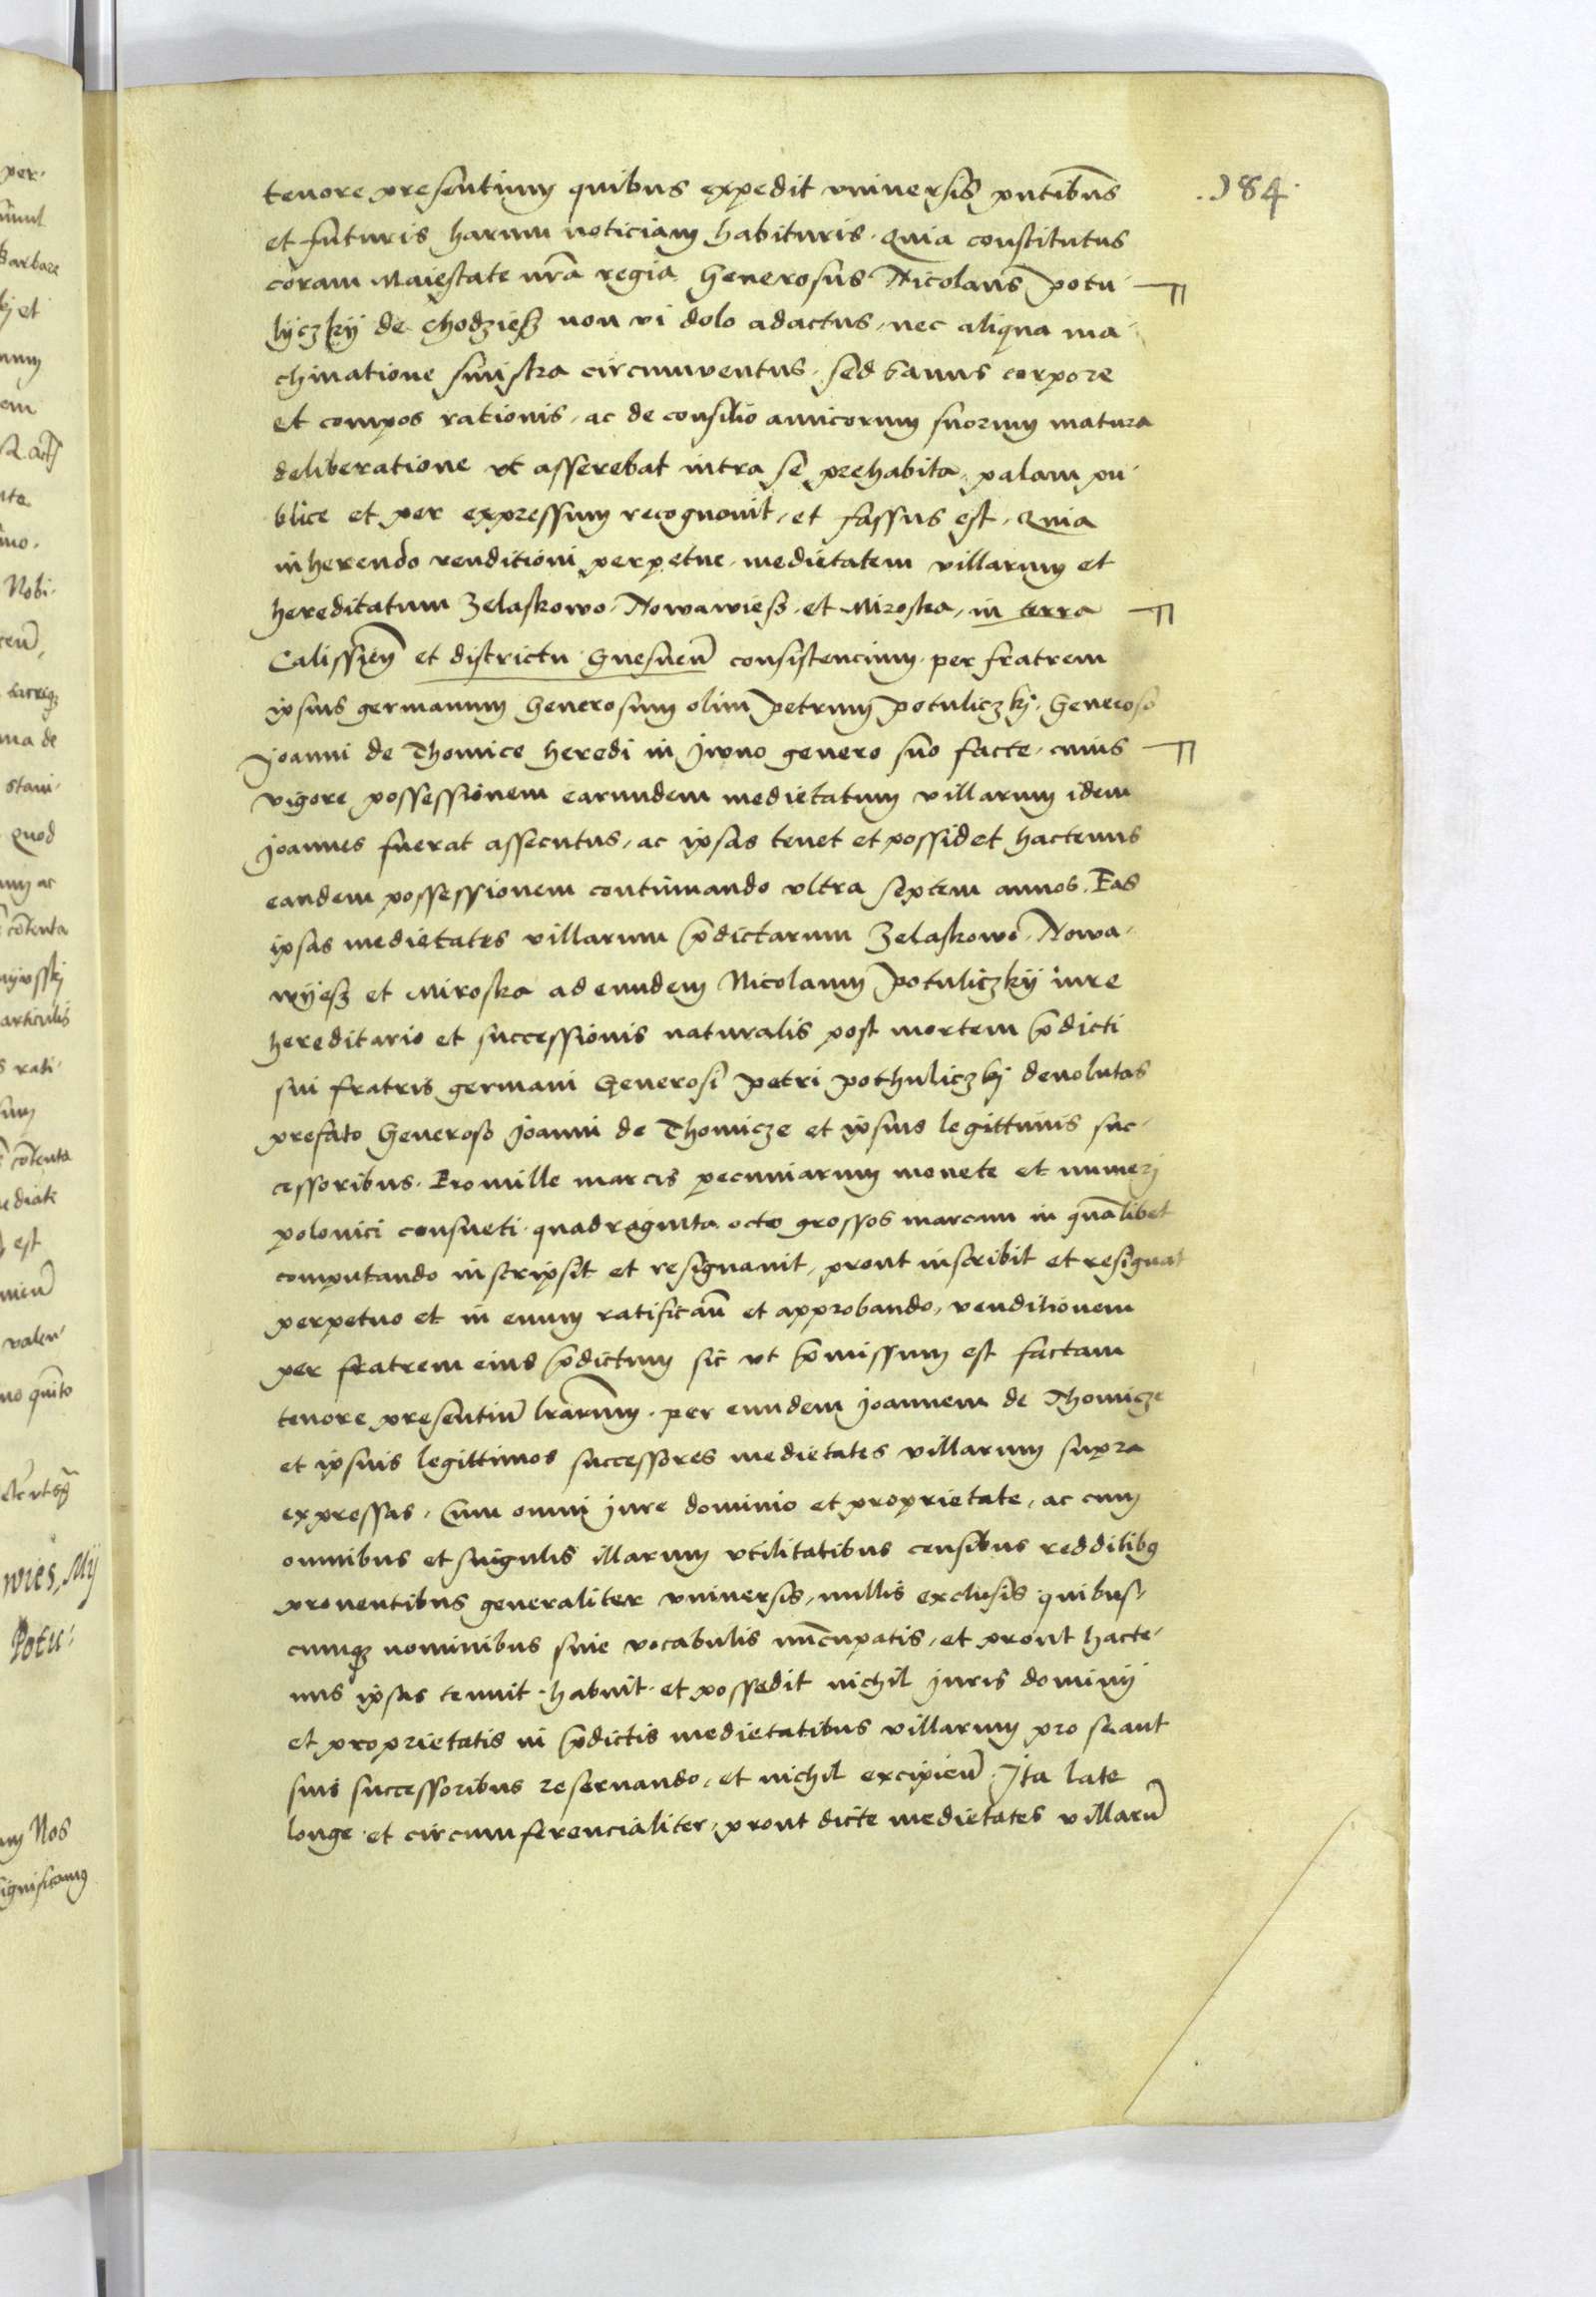 .184.
tenore presentium quibus expedit vniuersis pntibus
et futuris harum noticiam habituris. Quia constitutus
coram Maiestate nra regia Generosus Nicolaus Potu-
lyczky de Chodziesz non vi dolo adactus, nec aliqua ma-
chinatione sinistra circumuentus. sed sanus corpore
et compos rationis, ac de consilio amicorum suorum matura
deliberatione vt asserebat intra se prehabita, palam pu-
blice et per expressum recognouit, et fassus est, Quia
inherendo venditioni perpetue, medietatem villarum et
hereditatum Zelaskowo, Nowawiesz, et Miroska, in terra
Calissien et districtu Gnesnen consistencium. per fratrem
ipsius germanum Generosum olim Petrum Potuliczkj, Generoso
Joanni de Thomice heredi in Jwno genero suo facte, cuius
vigore possessionem earundem medietatum villarum idem
Joannes fuerat assecutus, ac ipsas tenet et possidet hactenus
eandem possessionem continuando vltra septem annos. Eas
ipsas medietates villarum pdictarum Zelaskowo, Nowa-
wyesz et Miroska ad eundem Nicolaum Potuliczky iure
hereditario et successionis naturalis post mortem pdicti
sui fratris germani Generosi Petri Pothuliczkj deuolutas
prefato Generoso Joanni de Thomicze et ipsius legittimis suc-
cessoribus. Pro mille marcis pecuniarum monete et numerj
polonici consueti quadraginta octo grossos marcam in qualibet
computando inscripsit et resignauit, prout inscribit et resignat
perpetuo et in euum ratifican et approbando, venditionem
per fratrem eius pdictum sic vt pmissum est factam
tenore presentiu lrarum. per eundem Joannem de Thomicze
et ipsius legittimos successores medietates villarum supra
expressas, Cum omni jure dominio et proprietate, ac cum
omnibus et singulis illarum vtilitatibus censibus redditibq
prouentibus generaliter vniuersis, nullis exclusis quibus-
cumqz nominibus siue vocabulis nucupatis, et prout hacte-
nus ipsas tenuit. habuit. et possedit nichil juris dominij
et proprietatis in pdictis medietatibus villarum pro se aut
suis successoribus reseruando, et nichil excipien. Ita late
longe et circumferencialiter, prout dicte medietates villaru